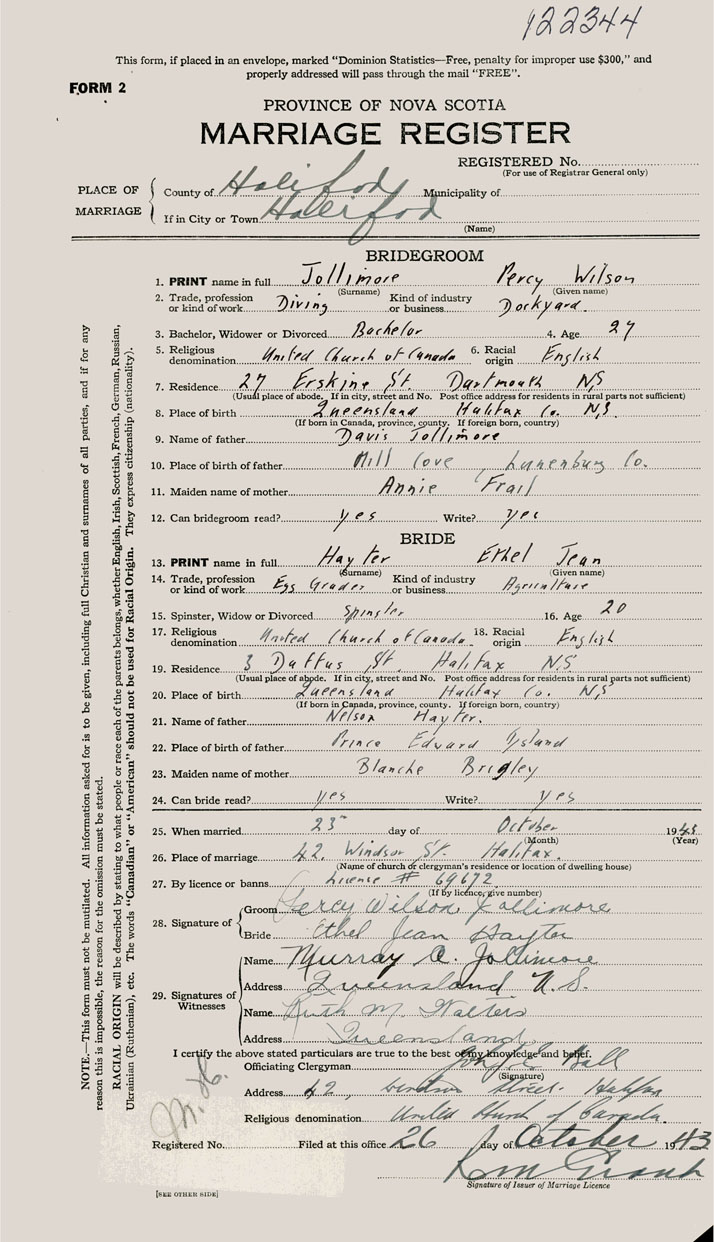 122344
This form, if placed in an envelope, marked "Dominion Statistics—Free, penalty for improper use $300," and
properly addressed will pass through the mail "FREE".
FORM 2
PROVINCE OF NOVA SCOTIA
MARRIAGE REGISTER
REGISTERED No.
(For use of Registrar General only)
PLACE OF MARRIAGE
County of Halifax Municipality of
If in City or Town Halifax
(Name)
BRIDEGROOM
1. PRINT name in full Jollimore Percy Wilson
(Surname) (Given name)
2. Trade, profession or kind of work Diving Kind of industry or business Dockyard.
3. Bachelor, Widower or Divorced Bachelor 4. Age 27
5. Religious denomination United Church of Canada 6. Racial origin English
7. Residence 27 Erskine St. Dartmouth NS
(Usual place of abode. If in city, street and No. Post office address for residents in rural parts not sufficient)
8. Place of birth Queensland Halifax Co. N.S
(If born in Canada, province, county. If foreign born, country)
9. Name of father Davis Jollimore
10. Place of birth of father Mill Cove, Lunenburg Co.
11. Maiden name of mother Annie Frail
12. Can bridegroom read? yes Write? yes
BRIDE
13. PRINT name in full Hayter Ethel Jean
(Surname) (Given name)
14. Trade, profession or kind of work Egg Grader Kind of industry or business Agriculture
15. Spinster, Widow or Divorced Spinster 16. Age 20
17. Religious denomination United Church of Canada. 18. Racial origin English
19. Residence 3 Duffus St. Halifax N.S
(Usual place of abode. If in city, street and No. Post office address for residents in rural parts not sufficient)
20. Place of birth Queensland Halifax Co. N.S
(If born in Canada, province, county. If foreign born, country)
21. Name of father Nelson Hayter.
22. Place of birth of father Prince Edward Island
23. Maiden name of mother Blanche Brigley
24. Can bride read? yes Write? yes
25. When married 23 day of October 1943
(Month) (Year)
26. Place of marriage 42. Windsor St. Halifax.
(Name of church or clergyman's residence or location of dwelling house)
27. By licence or banns License # 69672
(If by licence, give number)
28. Signature of
Groom Percy Wilson Jollimore
Bride Ethel Jean Hayter
29. Signatures of Witnesses
Name Murray A. Jollimore
Address Queensland N.S.
Name Ruth M. Walters
Address Queensland
I certify the above stated particulars are true to the best of my knowledge and belief.
Officiating Clergyman Ball
(Signature)
Address 42, Windsor Street. Halifax
Religious denomination United Church of Canada.
Registered No. Filed at this office 26 day of October 1943
Signature of Issuer of Marriage Licence
[SEE OTHER SIDE]
NOTE.—This form must not be mutilated. All information asked for is to be given, including full Christian and surnames of all parties, and if for any
reason this is impossible, the reason for the omission must be stated.
RACIAL ORIGIN will be described by stating to what people or race each of the parents belongs, whether English, Irish, Scottish, French, German, Russian,
Ukrainian (Ruthenian), etc. The words "Canadian" or "American" should not be used for Racial Origin. They express citizenship (nationality).